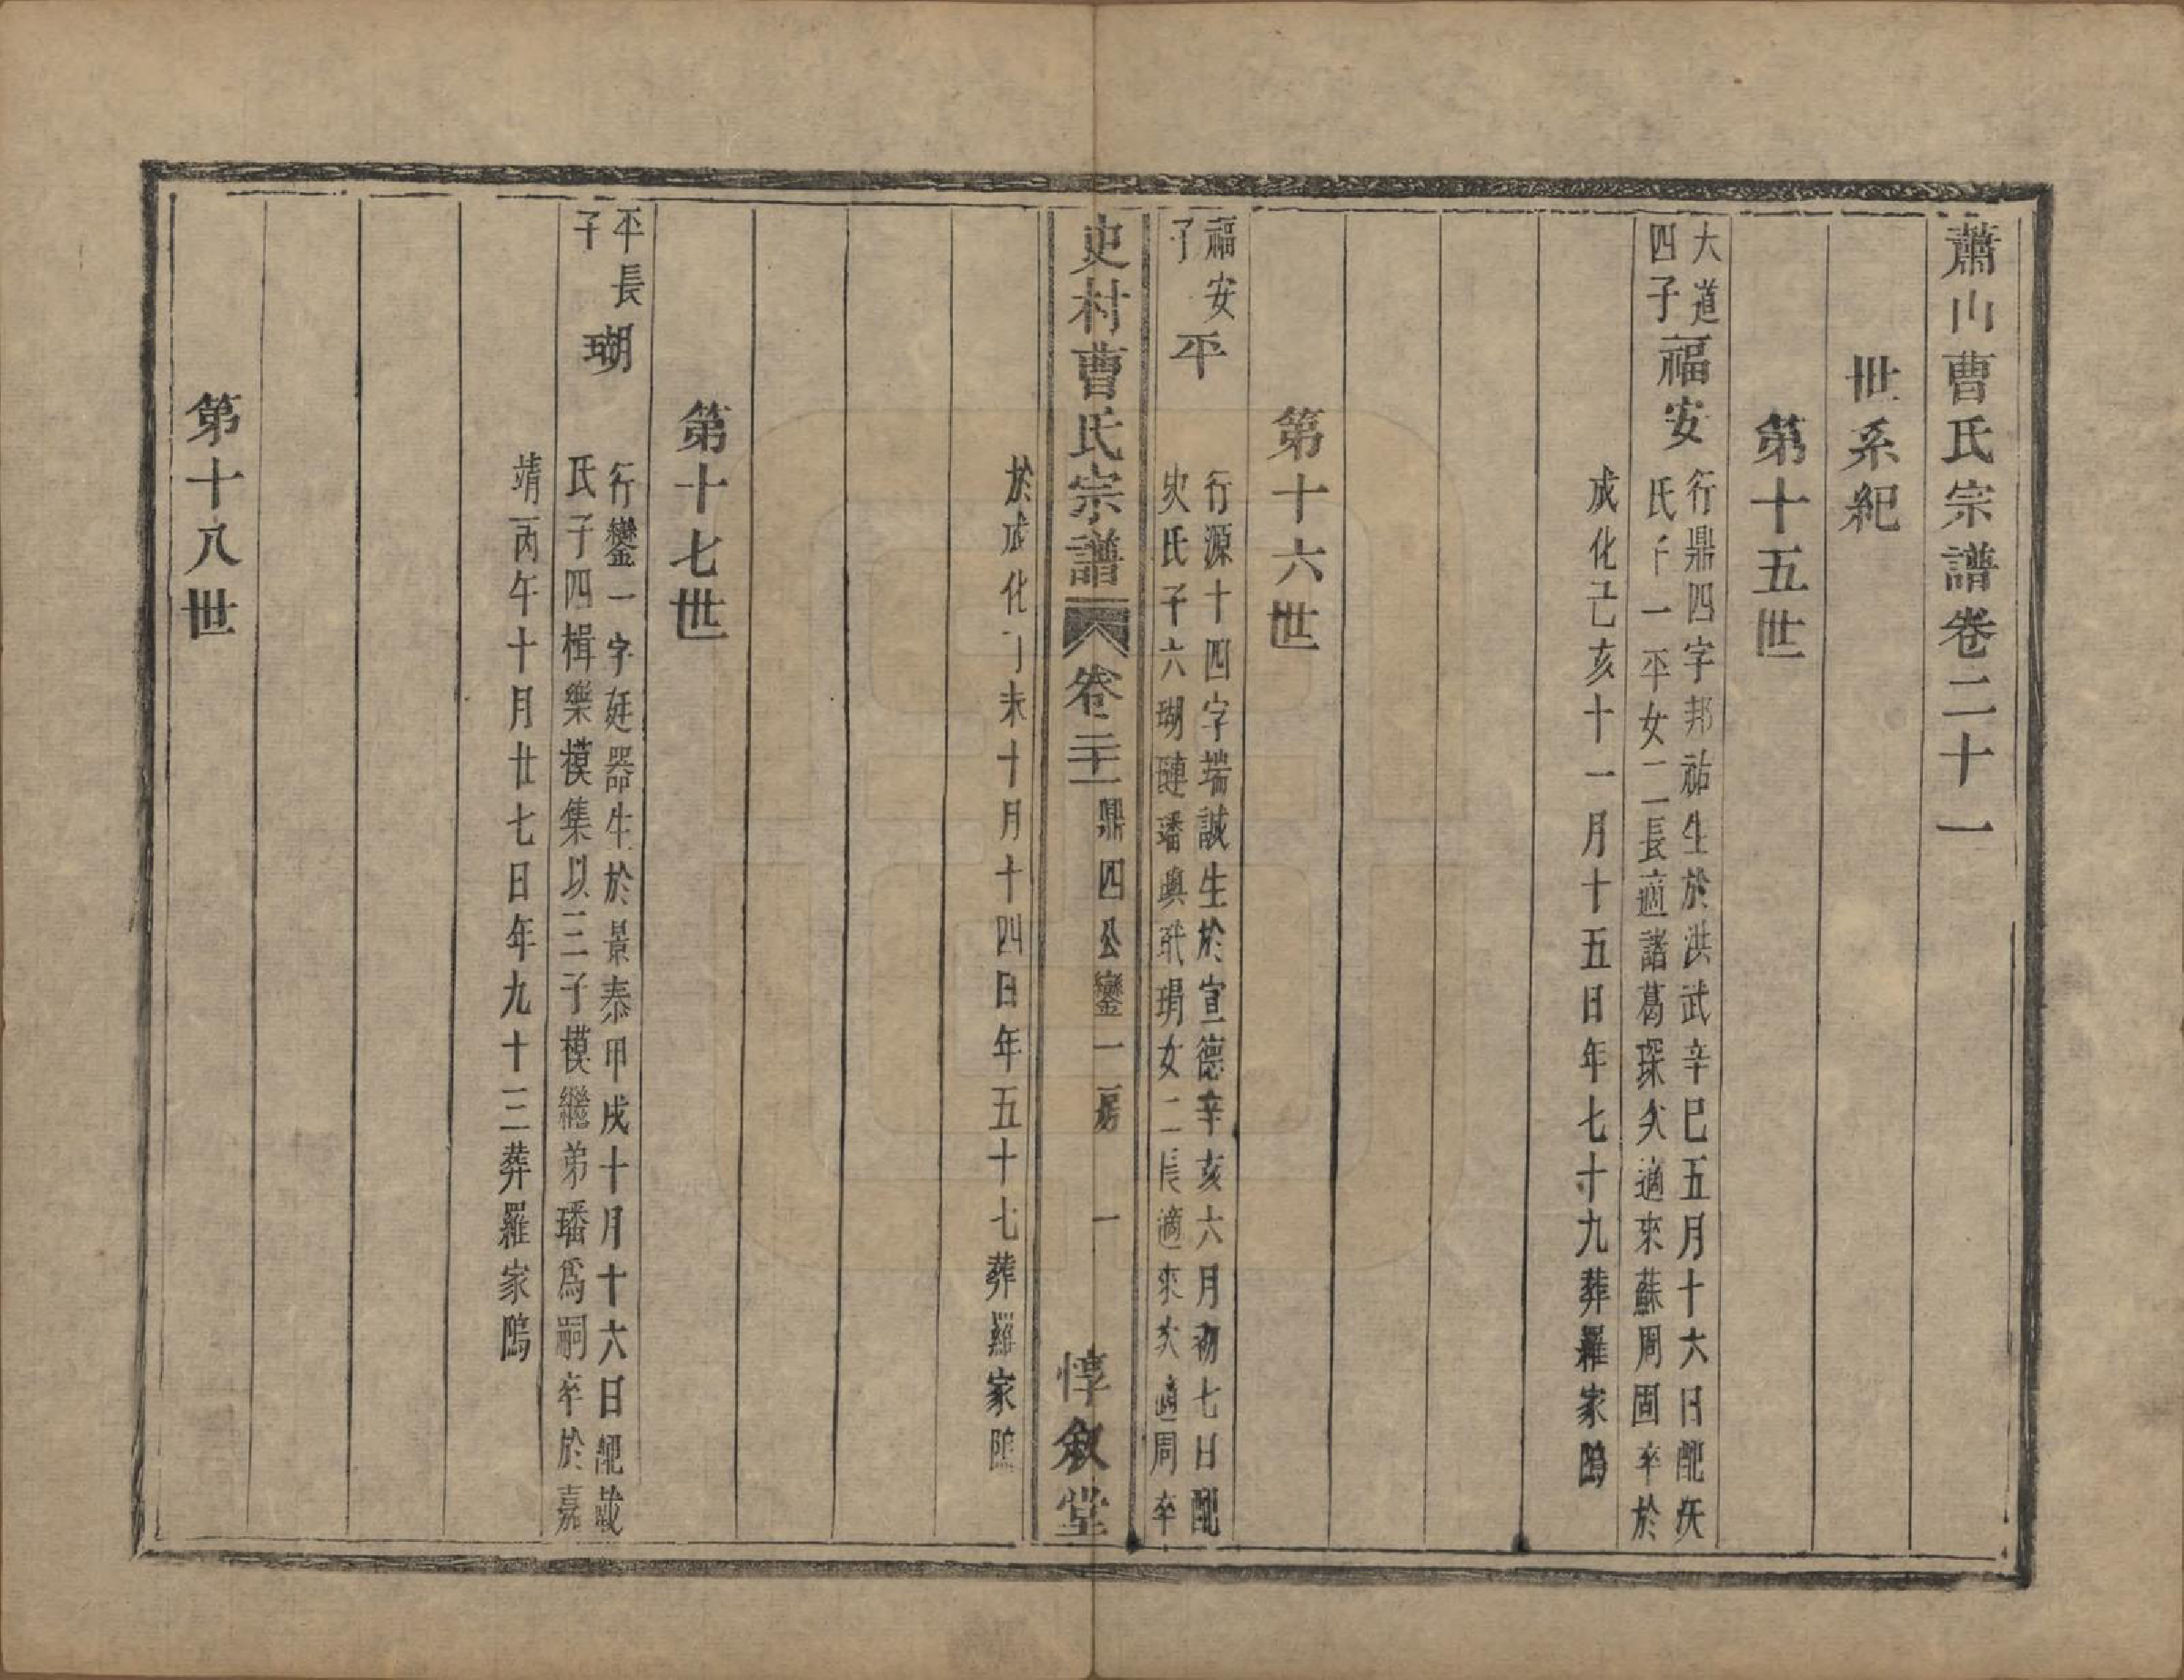 蕭山曹氏宗譜卷二十一
世系紀
第十五世
大道
四子
福安
行鼎四字邦祐生於洪武辛巳五月十六日配矢
氏子一平女二長適諸葛琛次適來蘇周固卒於
成化己亥十一月十五日年七十九葬羅家鴄
第十六世
福安
子
平
行源十四字端誠生於宣德辛亥六月初七日配
史氏子六瑚璉璠璵玳瑁女二長適來次適周卒
於成化丁未十月十四日年五十七葬羅家
史村曹氏宗譜
卷二十一
鼎四公鑾一房
一
惇敘堂
第十七世
平長
子
瑚
行鑾一字廷器生於景泰甲戌十月十六日配戴
氏子四楫樂模集以三子模繼弟璠爲嗣卒於嘉
靖丙午十月廿七日年九十三葬羅家
第十八世